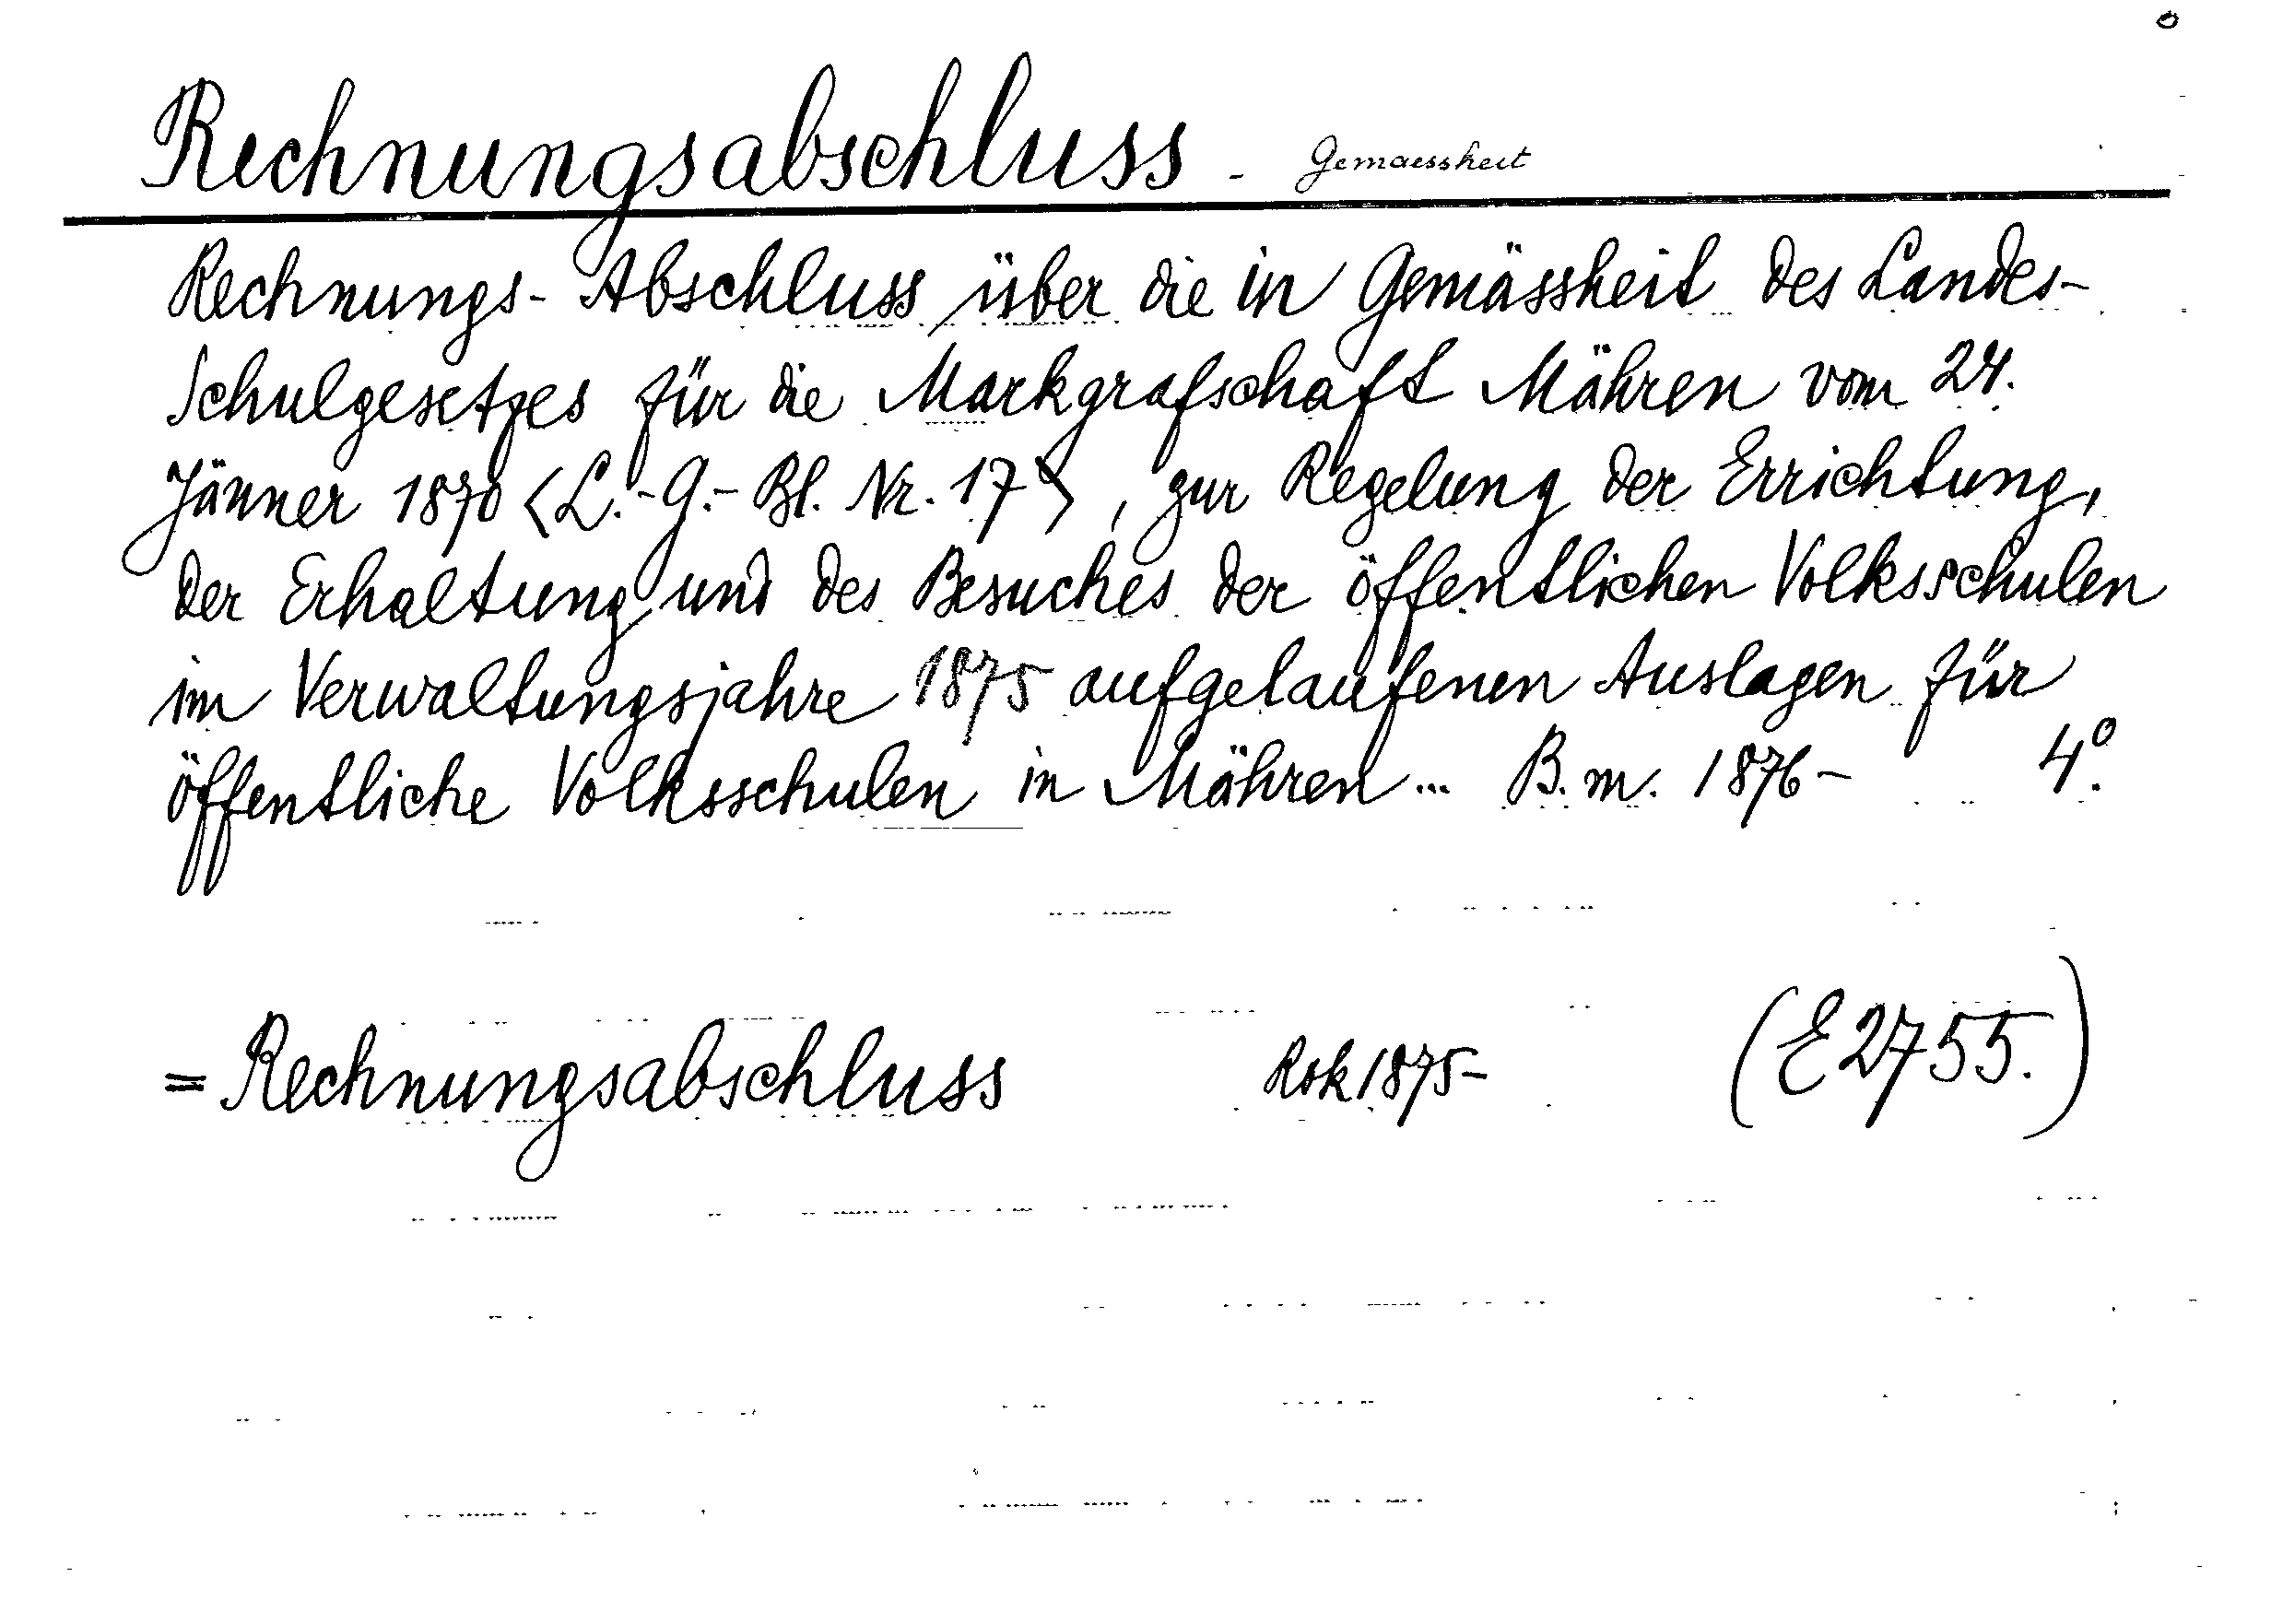 Rechnungsabschluss - Gemaessheit
Rechnungs-Abschluss über die in Gemässheit des Landes-
Schulgesetzes für die Markgrafschaft Mähren vom 24.
Jänner 1870 <L.-G.-Bl. Nr. 17>, zur Regelung der Errichtung,
der Erhaltung und des Besuches der öffentlichen Volksschulen
im Verwaltungsjahre 1875 aufgelaufenen Auslagen für
öffentliche Volksschulen in Mähren... B. m. 1876- 4°.
= Rechnungsabschluss Rok 1875- (E 2755.)